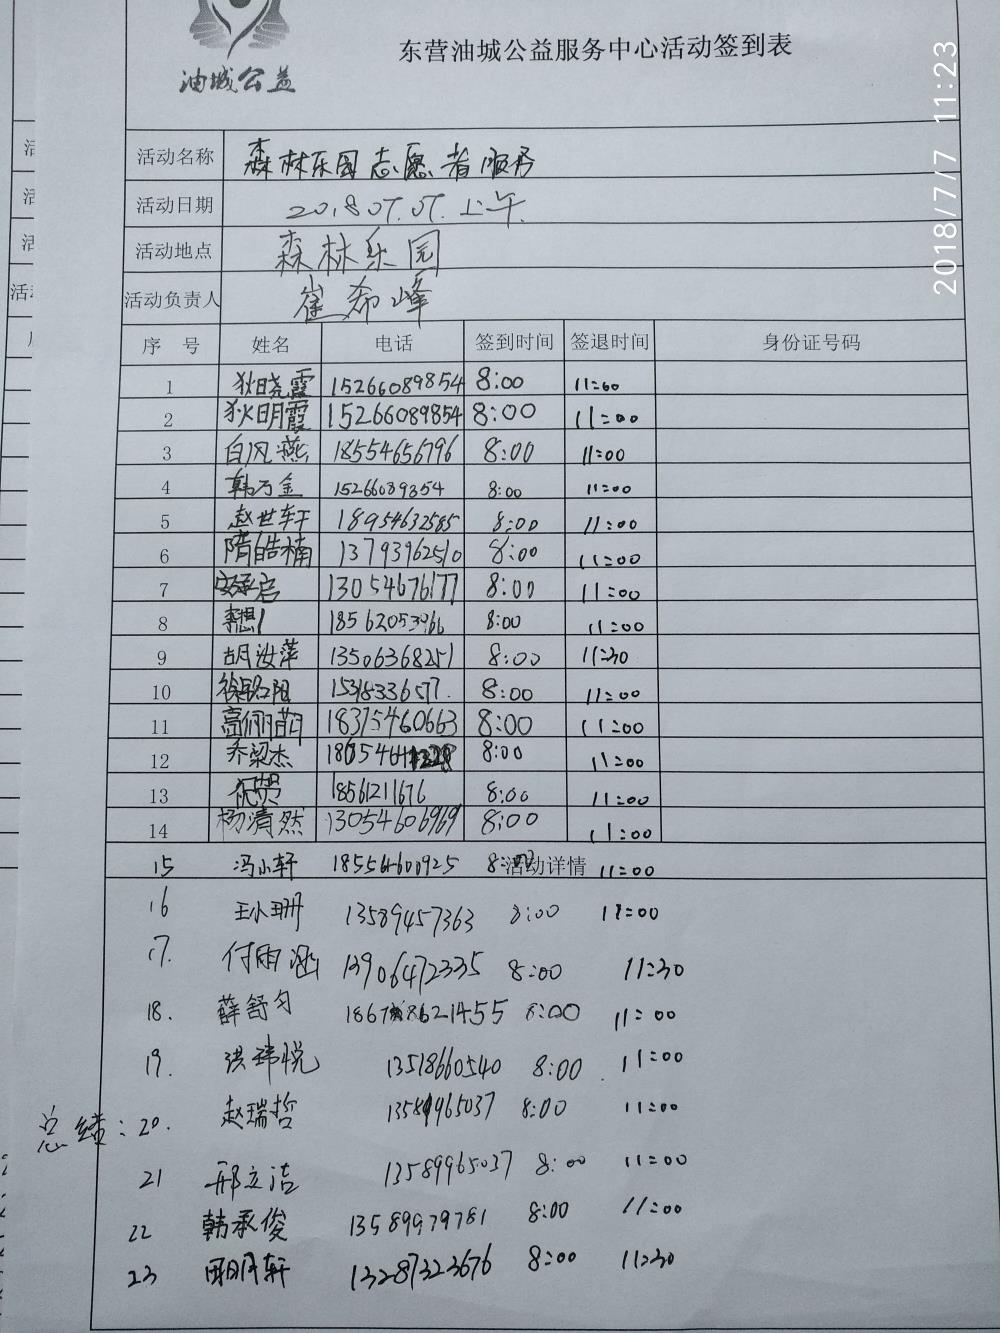 油城公益
东营油城公益服务中心活动签到表
2018/7/7 11:23
活动名称 森林乐园志愿者服务
活动日期 2018.07.07.上午.
活动地点 森林乐园
活动负责人 崔希峰
序 号 姓名 电话 签到时间 签退时间 身份证号码
1 狄晓霞 15266089854 8:00 11:00
2 狄明霞 15266089854 8:00 11:00
3 白风燕 18554656796 8:00 11:00
4 韩万金 8:00 11:00
5 赵世轩 18954632585 8:00 11:00
6 隋皓楠 13793962510 8:00 11:00
7 13054676177 8:00 11:00
8 8:00 11:00
9 胡汝萍 13506368251 8:00 11:30
10 8:00 11:00
11 高俪萌 18375460663 8:00 11:00
12 乔梁杰 8:00 11:00
13 祝贺 18561211676 8:00 11:00
14 杨清然 13054606969 8:00 11:00
15 冯小轩 18554600925 8:00 活动详情 11:00
16 王小珊 13589457363 8:00 11:00
17. 付雨涵 13906472335 8:00 11:30
18. 薛舒匀 8:00 11:00
19. 洪祎悦 13518660540 8:00 11:00
总结: 20. 赵瑞哲 13589965037 8:00 11:00
21 邢立洁 13589965037 8:00 11:00
22 韩承俊 13589979781 8:00 11:00
23 13287323676 8:00 11:30